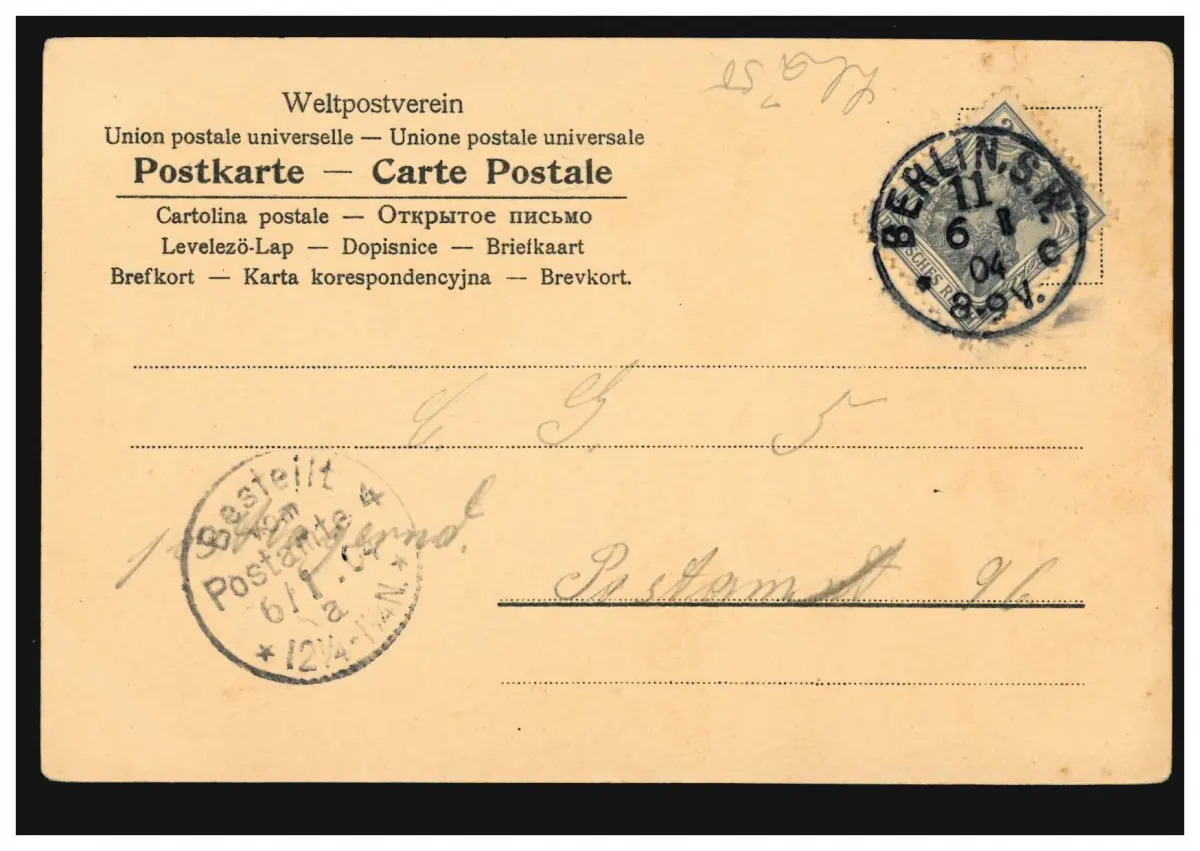 Weltpostverein
Union postale universelle — Unione postale universale
Postkarte — Carte Postale
Cartolina postale — Открытое письмо
Levelező-Lap — Dopisnice — Briefkaart
Brefkort — Karta korespondencyjna — Brevkort.
BERLIN, S.W.
11
6 1
04 C
* 8-9V.
2
SCHES REI
E. G. 5
Bestellt
vom
Postamte 4
6/1.04
a
* 12¼-1¼N. *
lagernd.
Postamt 96